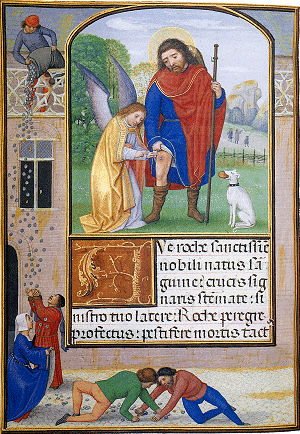 AVe roche sanctissīe
nobili natus sā
guine: crucis sig
naris stēmate: si
nistro tuo latere: Roche peregre
profectus: pestifere mortis tact